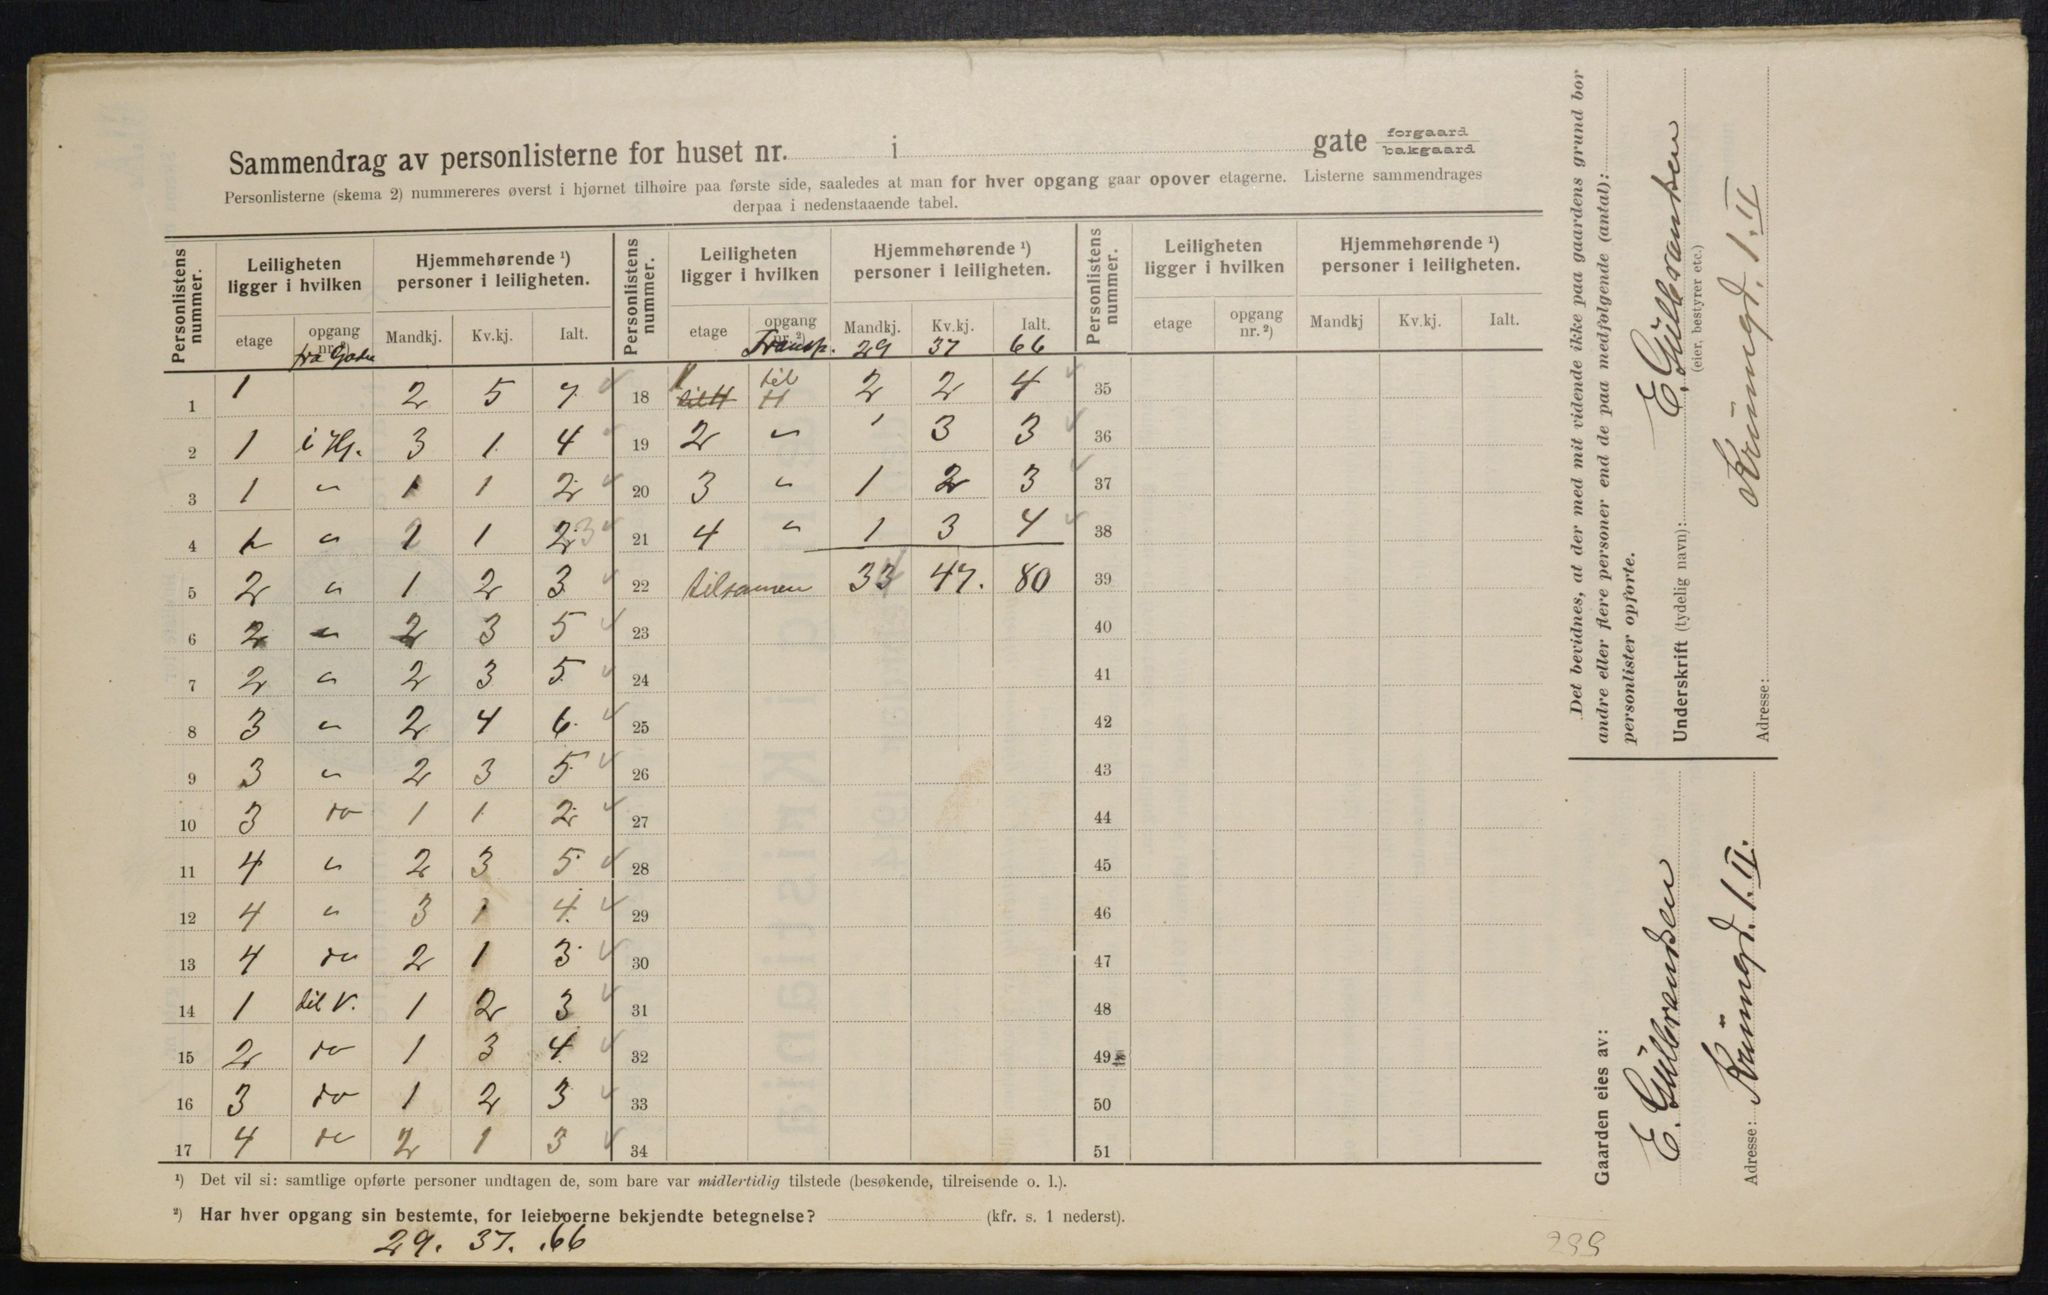 Sammendrag av personlisterne for huset nr. i gate forgaard bakgaard
Personlisterne (skema 2) nummereres øverst i hjørnet tilhøire paa første side, saaledes at man for hver opgang gaar opover etagerne. Listerne sammendrages
derpaa i nedenstaaende tabel.
Personlistens nummer. Leiligheten ligger i hvilken Hjemmehørende ¹) personer i leiligheten. Personlistens nummer. Leiligheten ligger i hvilken Hjemmehørende ¹) personer i leiligheten. Personlistens nummer. Leiligheten ligger i hvilken Hjemmehørende ¹) personer i leiligheten.
etage opgang nr. ²) Mandkj. Kv.kj. Ialt. etage opgang nr. ²) Mandkj. Kv.kj. Ialt. etage opgang nr. ²) Mandkj Kv.kj. Ialt.
fra Gaden Transp. 29 37 66
1 1 2 5 7 18 1 til H 2 2 4 35
2 1 i Hg. 3 1 4 19 2 " ' 3 3 36
3 1 " 1 1 2 20 3 " 1 2 3 37
4 1 " 1 1 2 3 21 4 " 1 3 4 38
5 2 " 1 2 3 22 tilsamen 33 47. 80 39
6 2 " 2 3 5 23 40
7 2 " 2 3 5 24 41
8 3 " 2 4 6 25 42
9 3 " 2 3 5 26 43
10 3 do 1 1 2 27 44
11 4 " 2 3 5 28 45
12 4 " 3 1 4 29 46
13 4 do 2 1 3 30 47
14 1 til V. 1 2 3 31 48
15 2 do 1 3 4 32 49
16 3 do 1 2 3 33 50
17 4 do 2 1 3 34 51
¹) Det vil si: samtlige opførte personer undtagen de, som bare var midlertidig tilstede (besøkende, tilreisende o. l.).
²) Har hver opgang sin bestemte, for leieboerne bekjendte betegnelse? (kfr. s. 1 nederst).
29. 37. .66
299
Det bevidnes, at der med mit vidende ikke paa gaardens grund bor
andre eller flere personer end de paa medfølgende (antal):
personlister opførte.
Underskrift (tydelig navn): E. Gülbransen
(eier, bestyrer etc.)
Adresse: Krüingd. 1. II
Gaarden eies av:
E. Gülbransen
Adresse: Krüingd. 1. II.